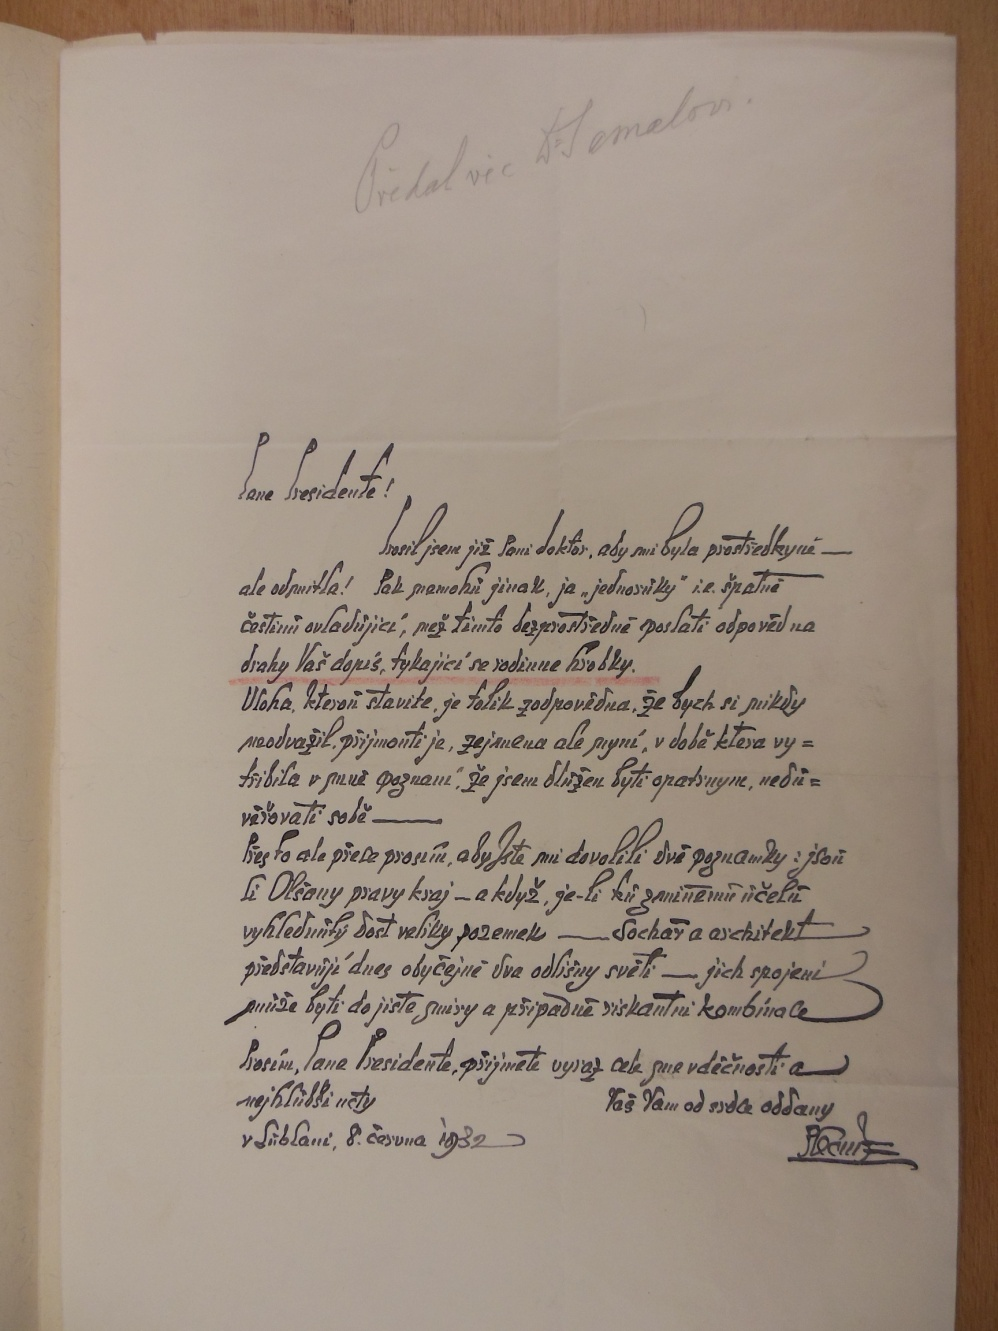 Předal věc Dr Semalovi.
Pane Presidente!
Prosil jsem již Pani doktor, aby mi byla prostředkyně —
ale odmitla! Pak nemohu jinak, ja „jednoruky" i.e. špatně
češtinu ovladajici, než timto bezprostředně poslati odpověd na
drahy Vaš dopis, tykajici se rodinne hrobky.
Uloha, kterou stavite, je tolik zodpovědna, že bych si nikdy
neodvažil, přijmouti je, zejmena ale nyni, v době ktera vy=
tribila v mně poznani, že jsem dlužen byti opatrnym, nedu=
věřovati sobě —
Presto ale přece prosim, aby Jste mi dovolili dvě poznamky: jsou
li Olšany pravy kraj — a když, je-li ku zminěnemu učelu
vyhlednuty dost veliky pozemek — Sochař a architekt
představuji dnes obyčejně dva odlišny světi — jich spojeni
může byti do jiste miry a připadně riskantni kombinace
Prosim, Pane Presidente, přijměte vyraz vděčnosti a
nejhlubši ucty
Vaš Vam od srdce oddany
v Lublani, 8. června 1932
Plečnik